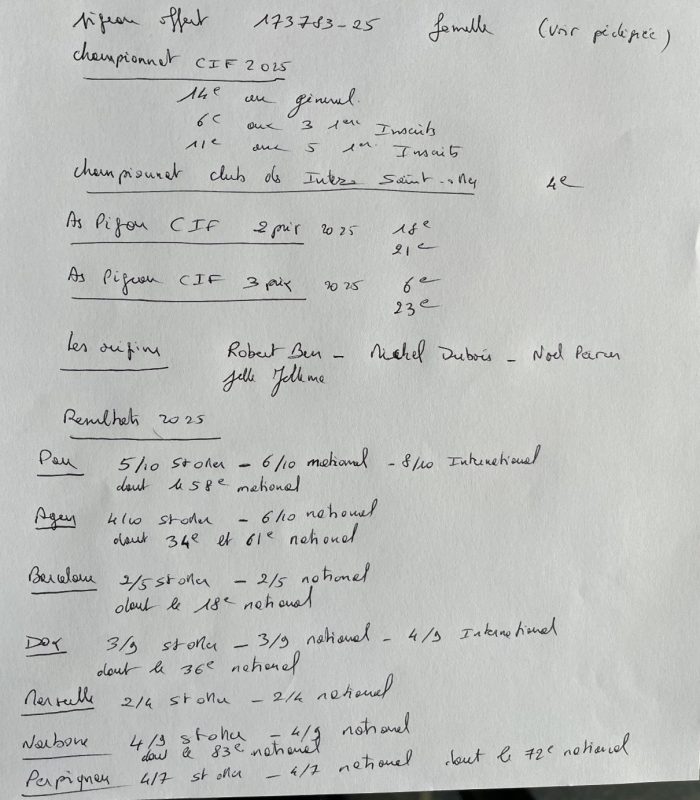 pigeon offert 173783-25 femelle (voir pédigrée)
championnat CIF 2025
14e au général.
6e aux 3 1er Inscrits
11e aux 5 1er Inscrits
championnat club de Inter Saint 4e
As Pigeon CIF 2 prix 2025 18e
21e
As Pigeon CIF 3 prix 2025 6e
23e
Les origine Robert Ben - Michel Dubois - Noel
Jelle Jellema
Resultats 2025
Pau 5/10 st omer - 6/10 national - 8/10 International
dont le 58e national
Agen 4/10 st omer - 6/10 national
dont 34e et 61e national
Barcelone 2/5 st omer - 2/5 national
dont le 18e national
Dax 3/9 st omer - 3/9 national - 4/9 International
dont le 36e national
Marseille 2/4 st omer - 2/4 national
Narbone 4/9 st omer - 4/9 national
dont le 83e national
Perpignan 4/7 st omer - 4/7 national dont le 72e national